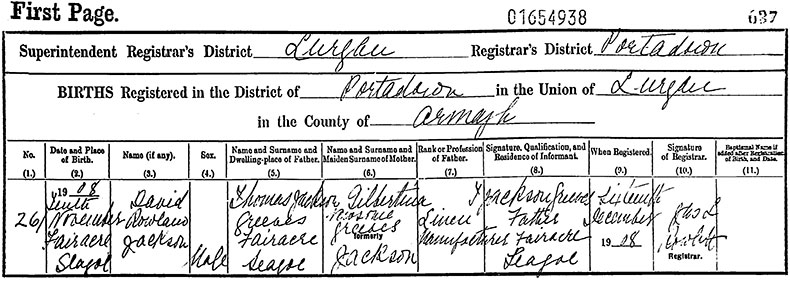 First Page. 01654938 637
Superintendent Registrar's District Lurgan Registrar's District Portadown
BIRTHS Registered in the District of Portadown in the Union of Lurgan
in the County of Armagh
No. Date and Place of Birth. Name (if any). Sex. Name and Surname and Dwelling-place of Father. Name and Surname and Maiden Surname of Mother. Rank or Profession of Father. Signature, Qualification, and Residence of Informant. When Registered. Signature of Registrar. Baptismal Name if added after Registration of Birth, and Date.
(1.) (2.) (3.) (4.) (5.) (6.) (7.) (8.) (9.) (10.) (11.)
1908 David Thomas Jackson Gilbertina T Jackson Greeves
Tenth
26 November Rowland Greeves Greeves Linen Father December
Fairacre Jackson Fairacre formerly Manufacturer Fairacre 1908
Seagoe Male Seagoe Jackson Seagoe Registrar.